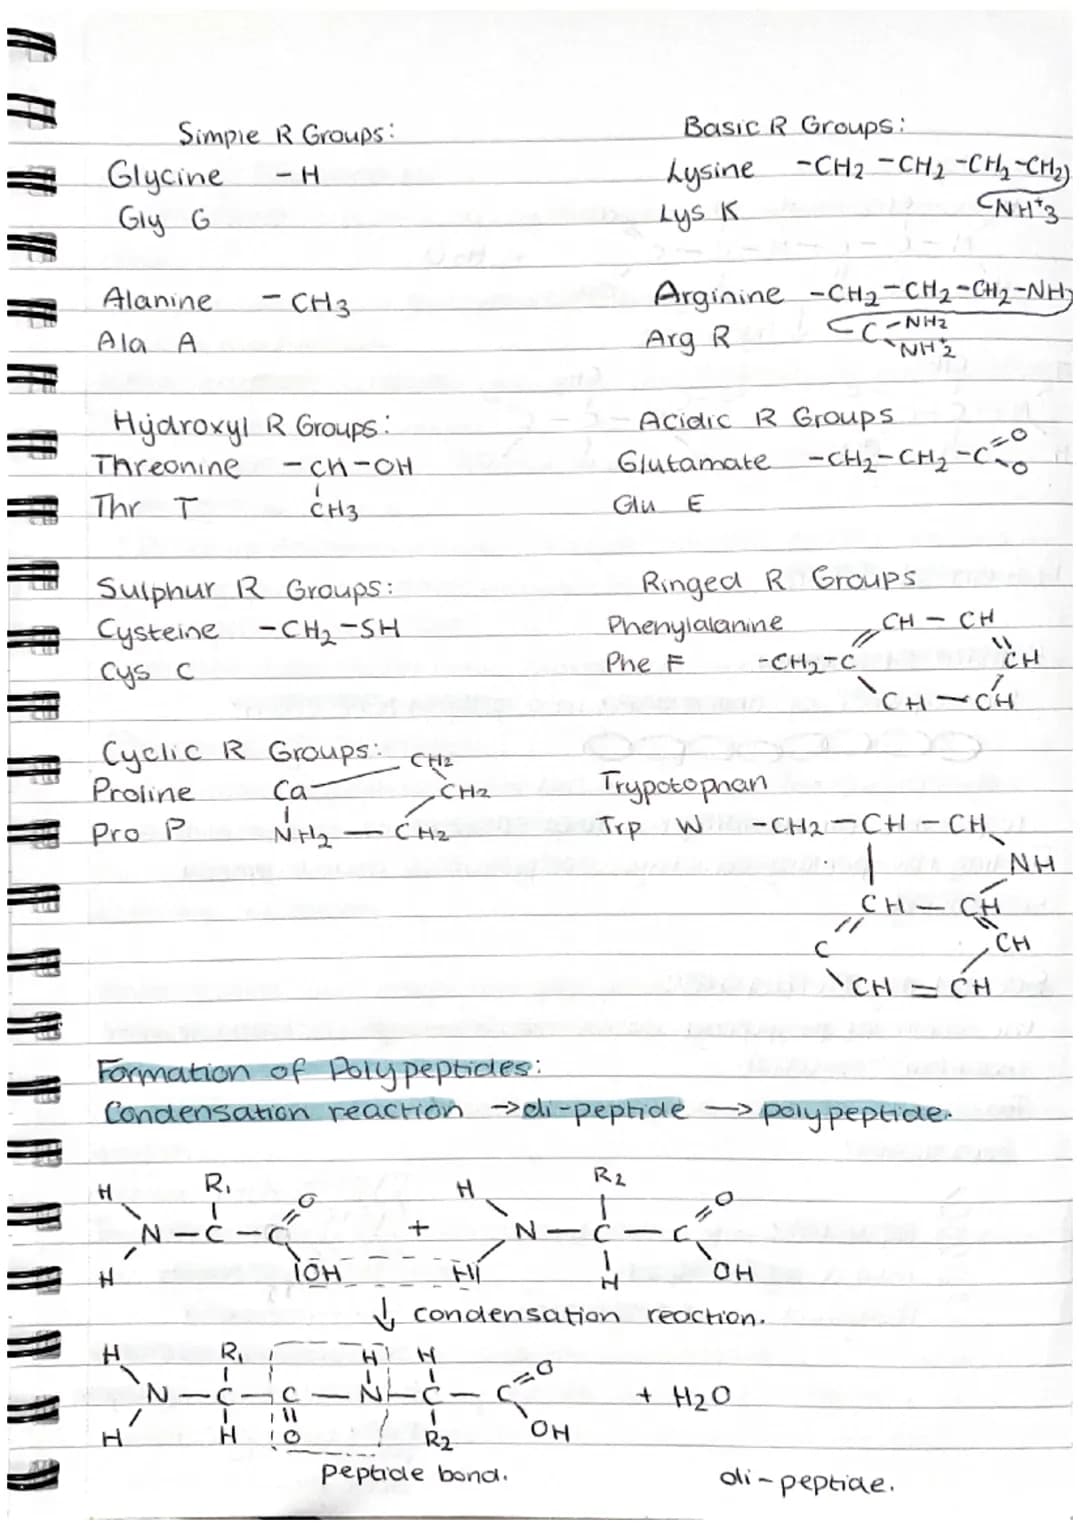 Simple R Groups:
Glycine - H
Gly G
Alanine - CH3
Ala A
Hydroxyl R Groups:
Threonine - CH - OH
Thr T CH3
Sulphur R Groups:
Cysteine - CH2 - SH
Cys C
Cyclic R Groups:
CH2
Proline Ca CH2
Pro P NH2 — CH2
Basic R Groups:
Lysine - CH2 - CH2 - CH2 - CH2
Lys K NH+3
Arginine - CH2 - CH2 - CH2 - NH
Arg R C - NH2
NH+2
Acidic R Groups
Glutamate - CH2 - CH2 - C = O
O
Glu E
Ringed R Groups
Phenylalanine CH - CH
Phe F - CH2 - C CH
CH — CH
Trypotophan
Trp W - CH2 - CH - CH
NH
CH — CH
C CH
CH = CH
Formation of Polypeptides:
Condensation reaction → di-peptide → polypeptide.
H R1 O H R2 O
N - C - C + N - C - C
H OH H H OH
↓ condensation reaction.
H R1 H H O
N - C - C - N - C - C + H2O
H H O R2 OH
peptide bond. di-peptide.